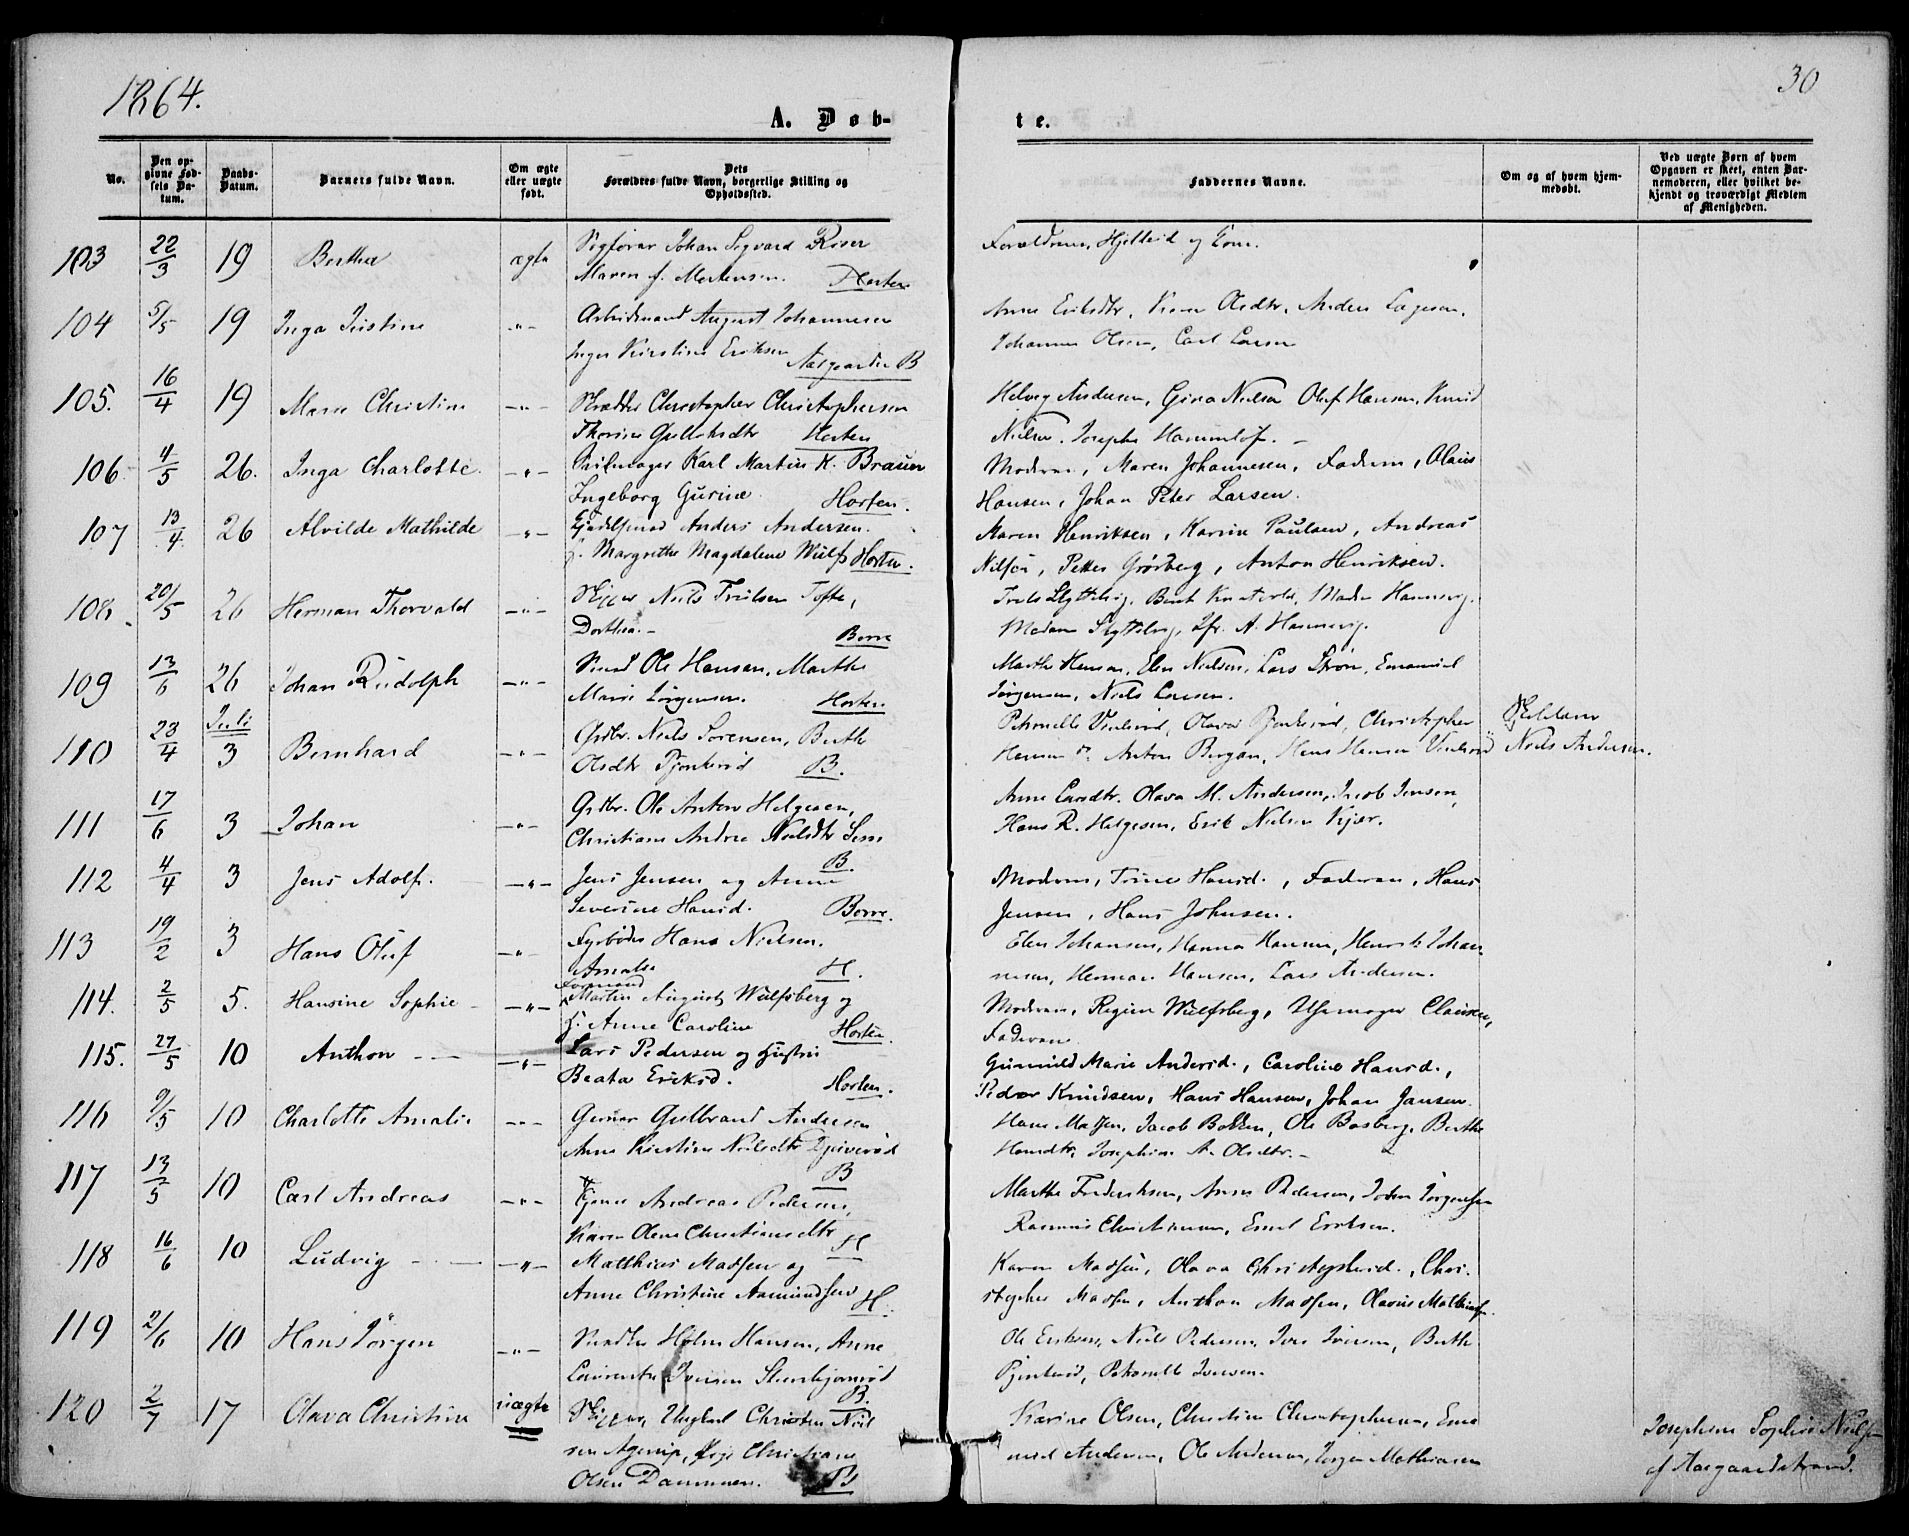 1864.
30
A. Døb-
te.
No.
Den opgivne Fødsels Datum.
Daabs-Datum.
Barnets fulde Navn.
Om ægte eller uægte født.
Dets Forældres fulde Navn, borgerlige Stilling og Opholdssted.
Faddernes Navne.
Om og af hvem hjemmedøbt.
Ved uægte Børn af hvem Opgaven er skeet, enten Barnemoderen, eller hvilket bekjendt og troværdigt Medlem af Menigheden.
103 22/3 19 Berthe ægte Johan Sigvard Riser
Maren f. Mortensen. Horten
Forældrene, og
104 5/5 19 Inga Kristine -"- Arbeidsmand August Johannesen
Inger Kirstine Eriksen Aasgaarden B
Anne Eriksdtr, Olsdtr, Anders
Johannes Olsen, Carl Larsen
105. 16/4 19 Marie Christine -"- Skrædder Christopher Christophersen
Thorine Horten
Helvig Andersen, Gina Nielsen Oluf Hansen, Knud
Nielsen. Josephe
106 4/5 26. Inga Charlotte. -"- Karl Martin K. Brauer
Ingeborg Gurine. Horten.
Moderen, Maren Johannesen, Faderen, Olaus
Hansen, Johan Peter Larsen.
107 13/4 26 Alvilde Mathilde -"- Anders Andersen.
H. Margrethe Magdalene Wulfs Horten.
Maren Henriksen, Karine Paulsen, Andreas
Nilsen, Petter Grørberg, Anton Henriksen.
108. 20/5 26 Herman Thorvald -"- Skipper Niels Trulsen Tofte,
Dorthea.- Borre
109 13/6 26 Johan Rudolph -"- Smed Ole Hansen, Marthe
Marie Jørgensen. Horten
Marthe Hansen, Elen Nielsen, Lars Strøm, Emanuel
Jørgensen, Niels Larsen.
110 23/4 Juli 3 Bernhard -"- Grdbr. Niels Sørensen, Berthe
Olsdtr B.
Petronelle Olava Christopher
Hansen Anton Bergan, Hans Hansen
Niels Andersen.
111 17/6 3 Johan -"- Grdbr. Ole Anton Helgesen,
Christiane Andrea Nielsdtr Sem
B.
Anne Larsdtr. Olava M. Andersen, Jacob Jensen,
Hans R. Helgesen, Erik Nielsen Kjær.
112 4/4 3 Jens Adolf. -"- Jens Jensen og Anne
Severine Hansd. Borre.
Moderen, Trine Hansd., Faderen, Hans
Jensen, Hans Johnsen.
113 19/2 3 Hans Oluf -"- Fyrbøder Hans Nielsen.
Amalie H.
Elen Johansen, Hanna Hansen, Henrik Johan-
nesen, Herman Hansen, Lars Andersen.
114. 2/5 5. Hansine Sophie -"- Formand Martin August Wulfsberg og
H. Anne Caroline Horten.
Moderen, Regine Wulfsberg, Uhrmager Clausen,
Faderen
115. 27/5 10 Anthon -"- Lars Pedersen og Hustru
Beata Eriksd. Horten.
Gunnild Marie Andersd., Caroline Hansd.,
Peder Knudsen, Hans Hansen, Johan Jansen.
116 9/5 10 Charlotte Amalie -"- Gulbrand Andersen
Anne Kirstine Nielsdtr
B
Hans Madsen, Jacob Bakken, Ole Basberg, Berthe
Hansdtr, Josephine A. Olsdtr.-
117 13/5 10 Carl Andreas -"- Andreas Pedersen,
Karen Olene Christiansdtr
H
Marthe Frederiksen, Anne Pedersen, Johan Jørgensen
Rasmus Christiansen, Emil Eriksen.
118 16/6 10 Ludvig -"- Matthias Madsen og
Anne Christine Aamundsen H.
Karen Madsen, Olava Christophersd., Chri-
stopher Madsen, Anthon Madsen, Olavus Mathiasen
119 2/6 10 Hans Jörgen -"- Holm Hansen, Anne
Laurentze Iversen
B.
Ole Eriksen, Niels Pedersen, Iver Iversen, Berthe
Petronelle Iversen.
120 2/7 17 Olava Christine uægte Skipper, Ungkarl Christen Niel-
sen Agerup, Pige Christiane
Olsen Dammen. B
Karine Olsen, Christine Christophersen, Ema-
nuel Andersen, Ole Andersen, Jørgen Mathiasen
Josephine Sophie Nielsen
af Aasgaardstrand.